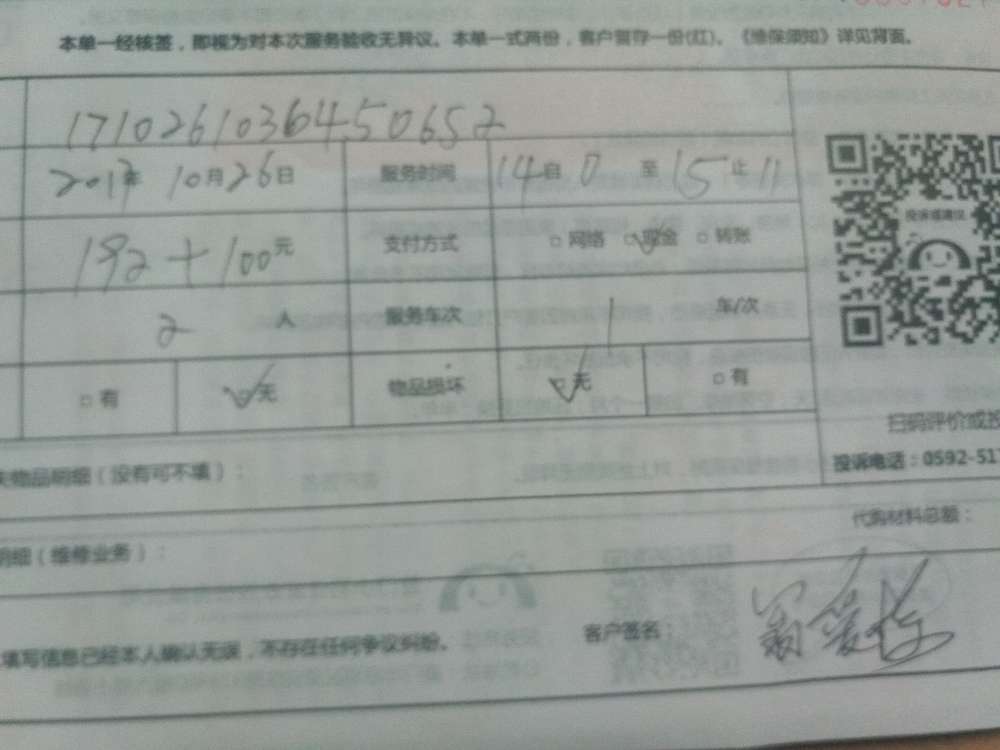 本单一经核签，即视为对本次服务验收无异议。本单一式两份，客户留存一份(红)。《维保须知》详见背面。
17102610364450652
2017年 10月26日 服务时间 14自 0 至 15止 11
192+100元 支付方式 □ 网络 ☑ 现金 □ 转账
投诉或建议
2 人 服务车次 1 车/次
□ 有 ☑ 无 物品损坏 ☑ 无 □ 有
扫码评价或投
失物品明细（没有可不填）：
投诉电话：0592-517
代购材料总额：
明细（维修业务）：
填写信息已经本人确认无误，不存在任何争议纠纷。 客户签名：